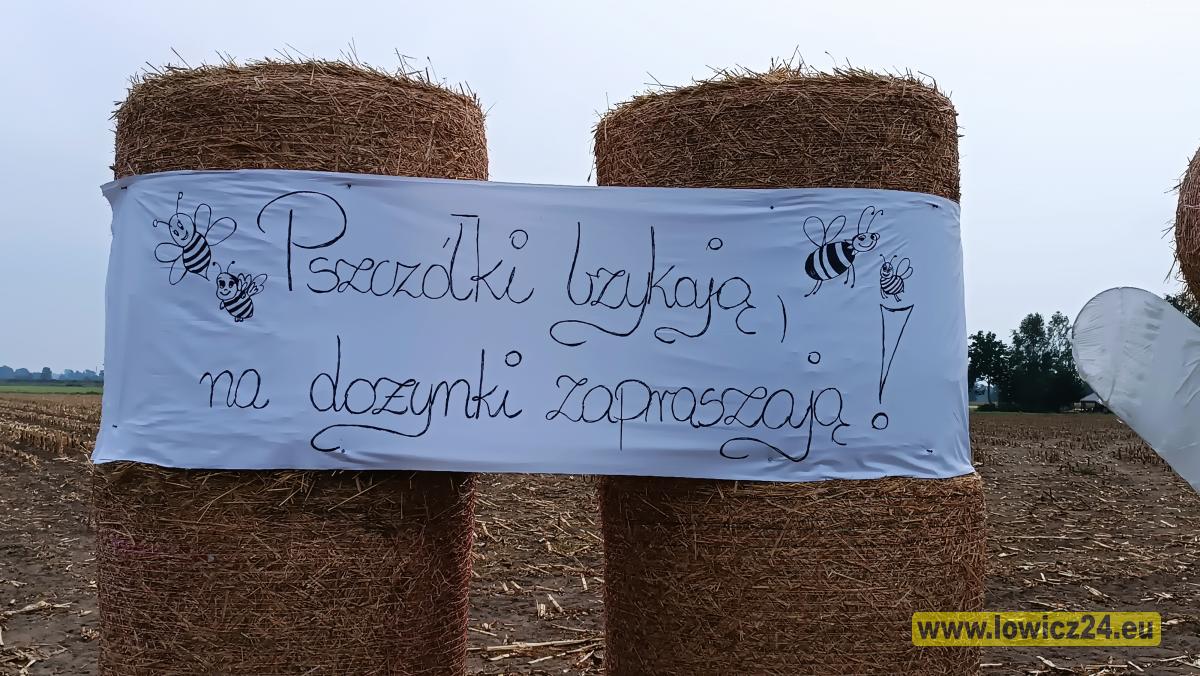 Pszczółki bzykają,
na dożynki zapraszają!
www.lowicz24.eu